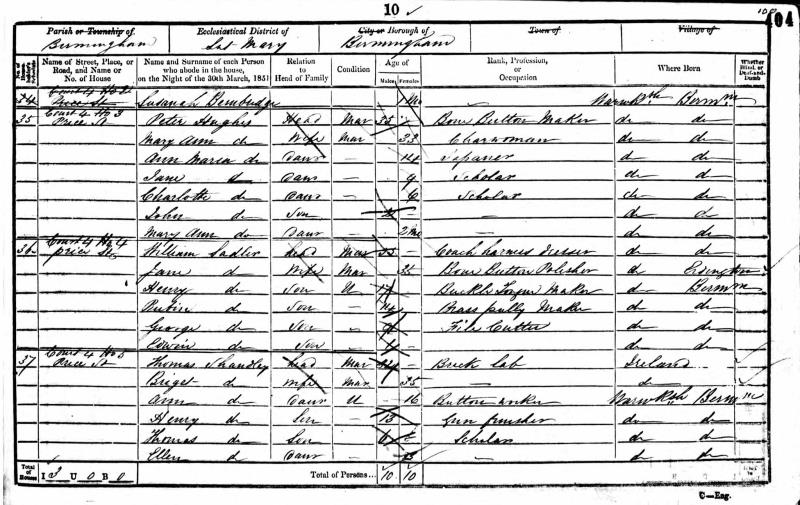 10
104
Parish or Township of Ecclesiastical District of City or Borough of Town of Village of
Birmingham St Mary Birmingham
No. of House- holder's Schedule Name of Street, Place, or Road, and Name or No. of House Name and Surname of each Person who abode in the house, on the Night of the 30th March, 1851 Relation to Head of Family Condition Age of Males Females Rank, Profession, or Occupation Where Born Whether Blind, or Deaf-and- Dumb
34 Court 4 No 2 Price St Susanah Bembridge — Berm m
35 Court 4 No 3 Price St Peter Hughes Head Mar 35 Bone Button Maker do do
Mary Ann do Wife Mar 33 Charwoman do do
Ann Maria do Daur — 14 Japaner do do
Jane do Daur — 9 Scholar do do
Charlotte do Daur — 6 Scholar do do
John do Son — — do do
Mary Ann do Daur 2 Mo — do do
36 Court 4 No 4 Price St William Sadler head Mar 35 Coach harness do do
Jane do Wife Mar 35 Bone Button Polisher do Erdington
Henry do Son U 17 Buckle Tongue Maker do Berm m
Rubin do Son — 14 Brass pully Maker do do
George do Son — 9 File Cutter do do
Edwin do Son — 4 — do do
37 Court 4 No 5 Price St Thomas Shandley head Mar Brick lab Ireland
Briget do wife Mar 35 — do
Ann do Daur U 16 Button Berm m
Henry do Son — 13 Gun finisher do do
Thomas do Son — 6 Scholar do do
Ellen do Daur — 3 — do do
Total of Houses I 3 U 0 B 0 Total of Persons... 10 10
C—Eng.